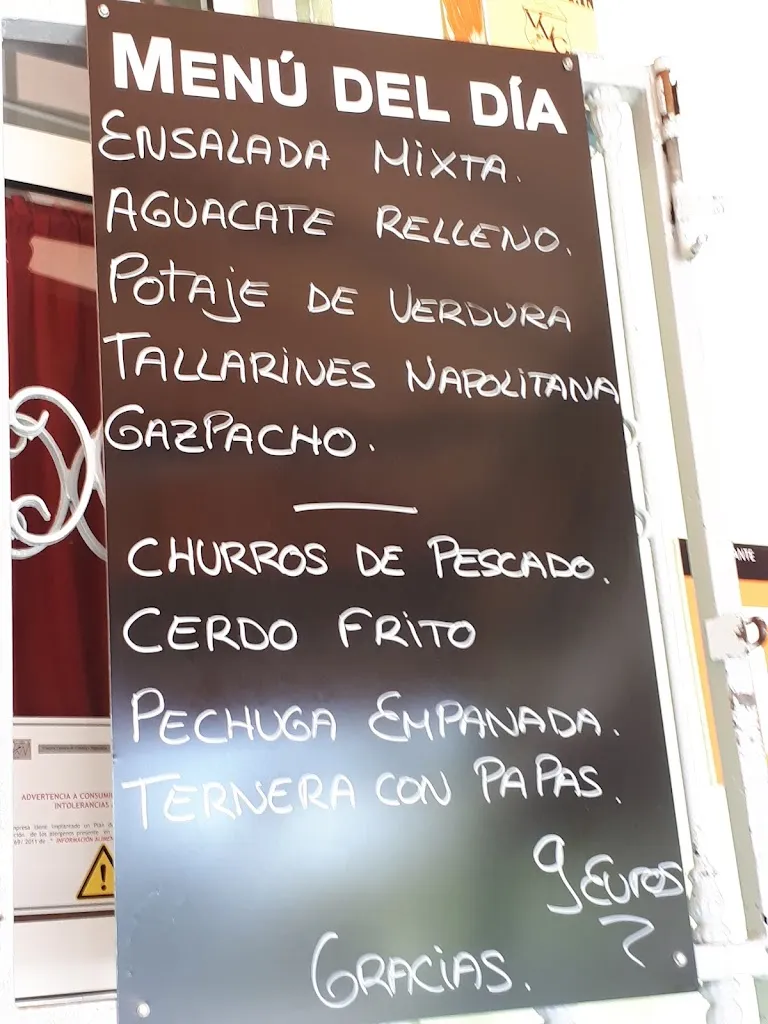 MENÚ DEL DÍA
ENSALADA MIXTA.
AGUACATE RELLENO.
POTAJE DE VERDURA
TALLARINES NAPOLITANA
GAZPACHO.
CHURROS DE PESCADO.
CERDO FRITO
PECHUGA EMPANADA.
TERNERA CON PAPAS.
9 EUROS
GRACIAS.
ANTE
ADVERTENCIA A CONSUMI
INTOLERANCIAS